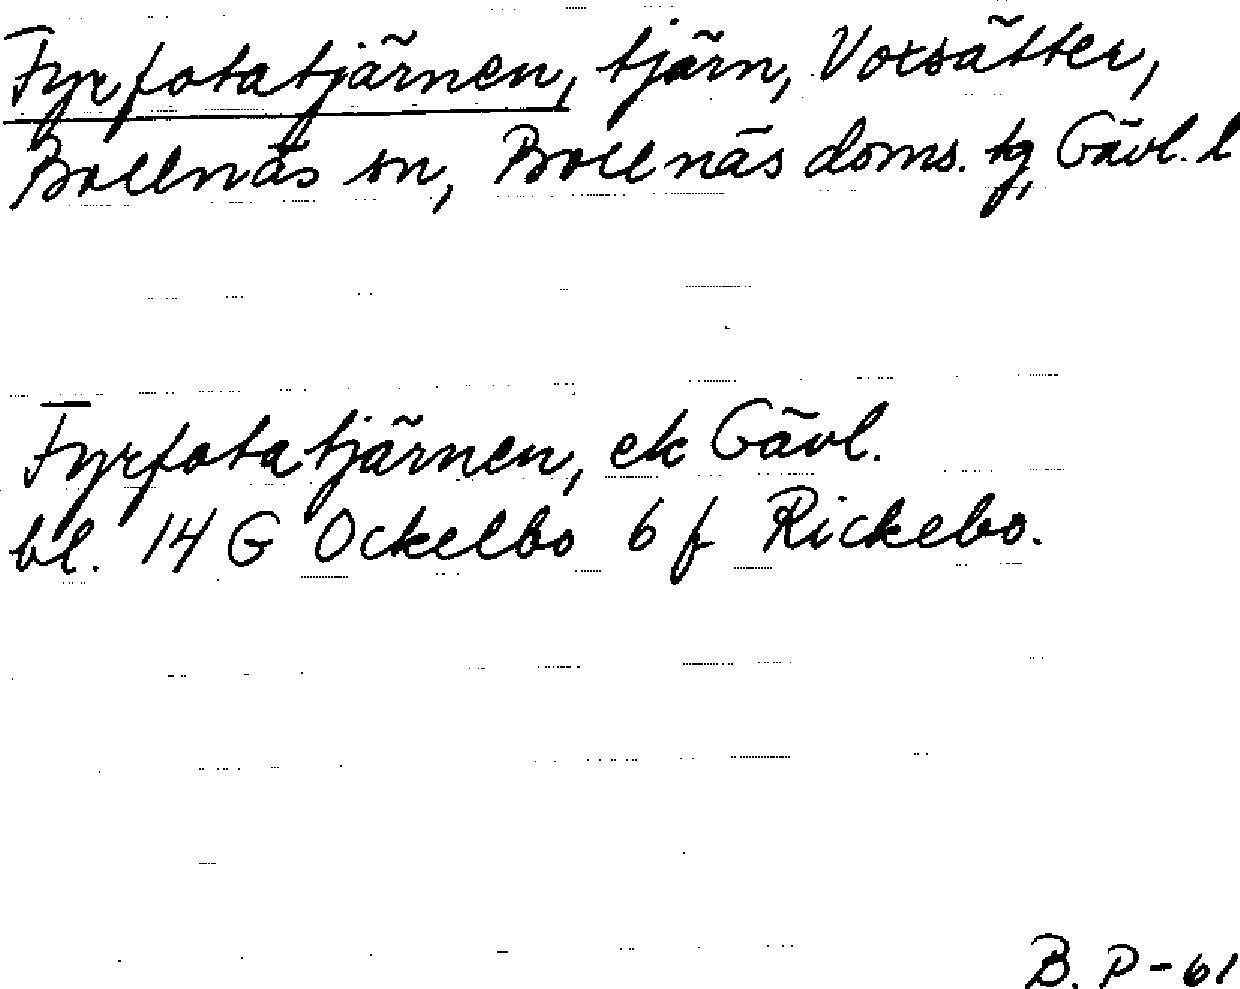 Fyrfotatjärnen, tjärn, Voxsätter,
Bollnäs sn, Bollnäs doms. tg, Gävl. l
Fyrfotatjärnen, ek Gävl.
bl. 14 G Ockelbo 6 f Rickebo.
B. P-61